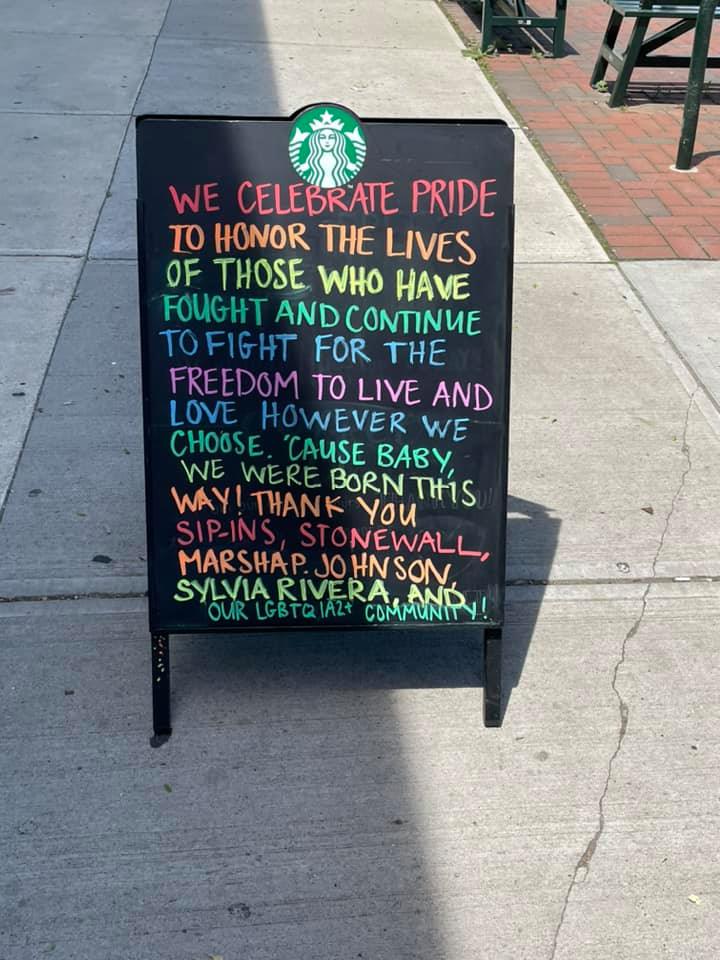 WE CELEBRATE PRIDE
TO HONOR THE LIVES
OF THOSE WHO HAVE
FOUGHT AND CONTINUE
TO FIGHT FOR THE
FREEDOM TO LIVE AND
LOVE HOWEVER WE
CHOOSE. 'CAUSE BABY,
WE WERE BORN THIS
WAY! THANK YOU
SIP-INS, STONEWALL,
MARSHA P. JOHNSON,
SYLVIA RIVERA, AND
OUR LGBTQIA2+ COMMUNITY!